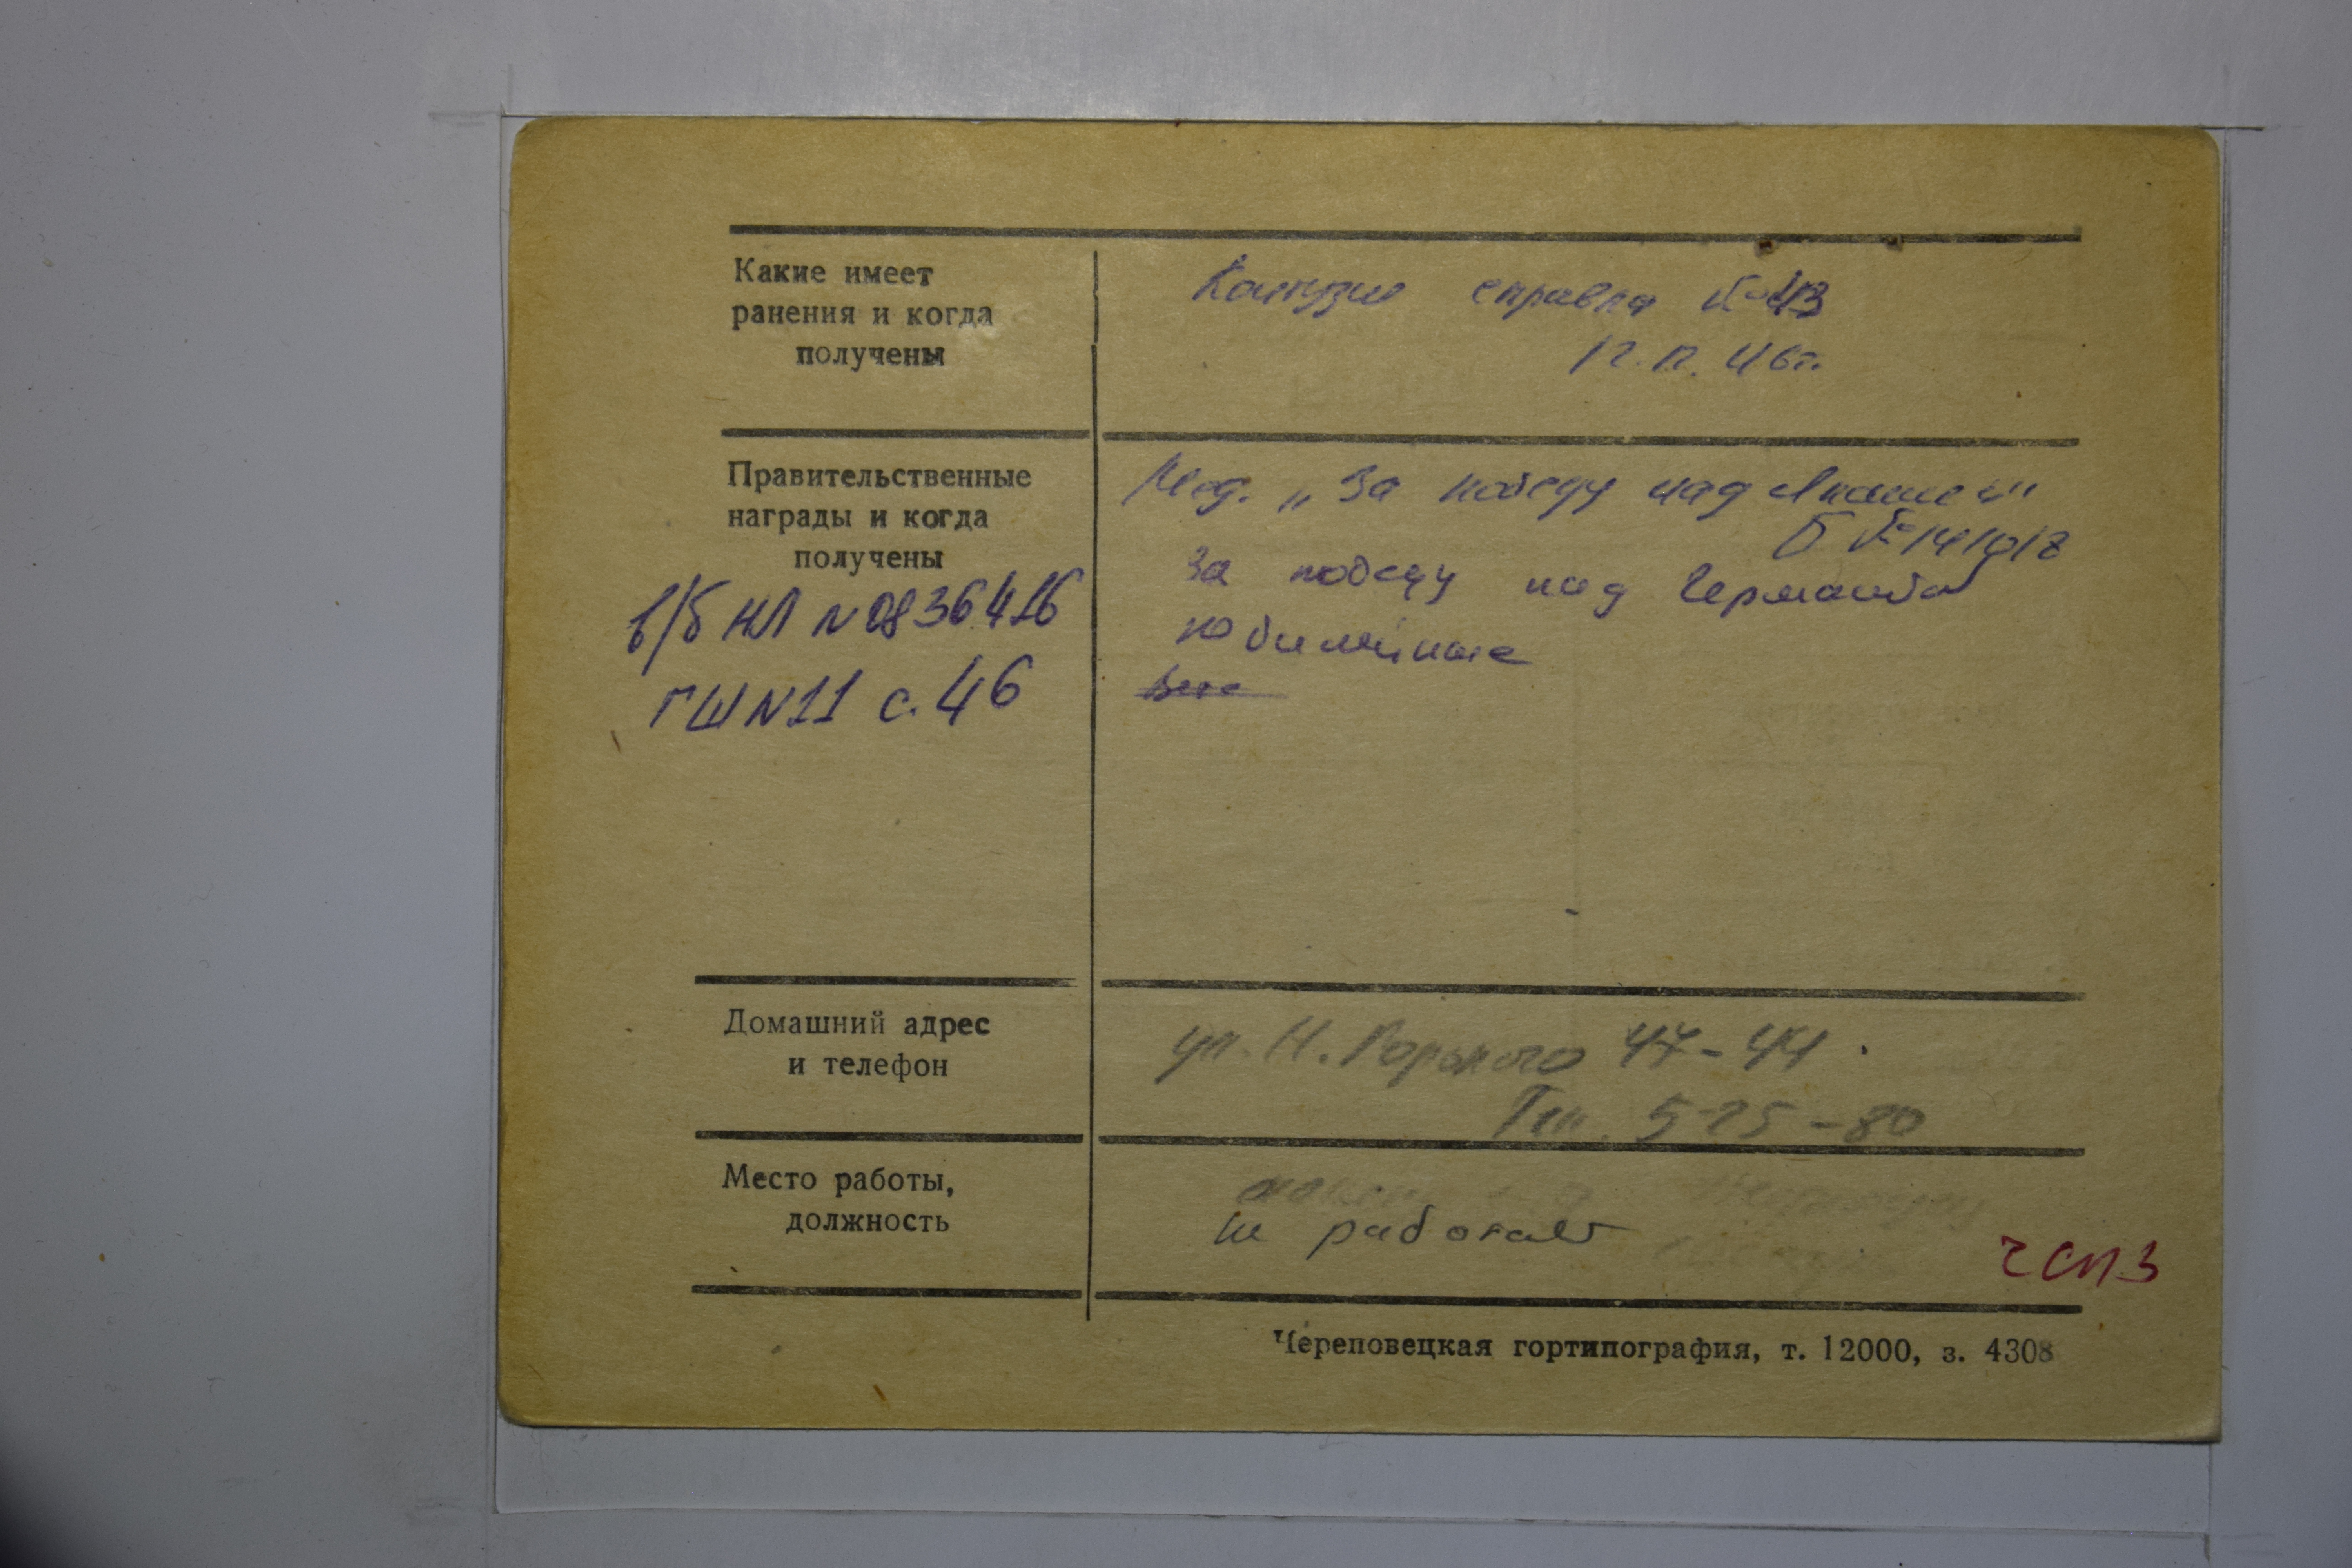 Какие имеет
ранения и когда
получены
Контузия справка № 43
12.П. 46г.
Правительственные
награды и когда
получены
в/б НЛ N 0836416
ГШ N 11 с. 46
Мед. „За победу над Японией"
Б № 141017
За победу над Германией
Юбилейные
Домашний адрес
и телефон
ул. М. Горького 47-44
Тел. 5-25-80
Место работы,
должность
не работает
ЧСПЗ
Череповецкая гортипография, т. 12000, з. 4308